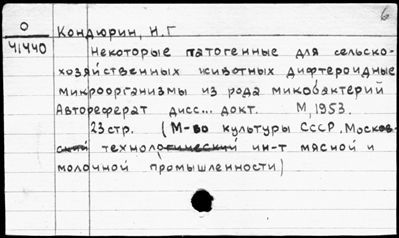 6
О
41440
Кондюрин, И.Г
Некоторые патогенные для сельско-
хозяйственных животных дифтероидные
микроорганизмы из рода микобактерий
Автореферат дисс... докт. М, 1953.
23 стр. (М-во культуры СССР. Москов-
ский технологический ин-т мясной и
молочной промышленности)